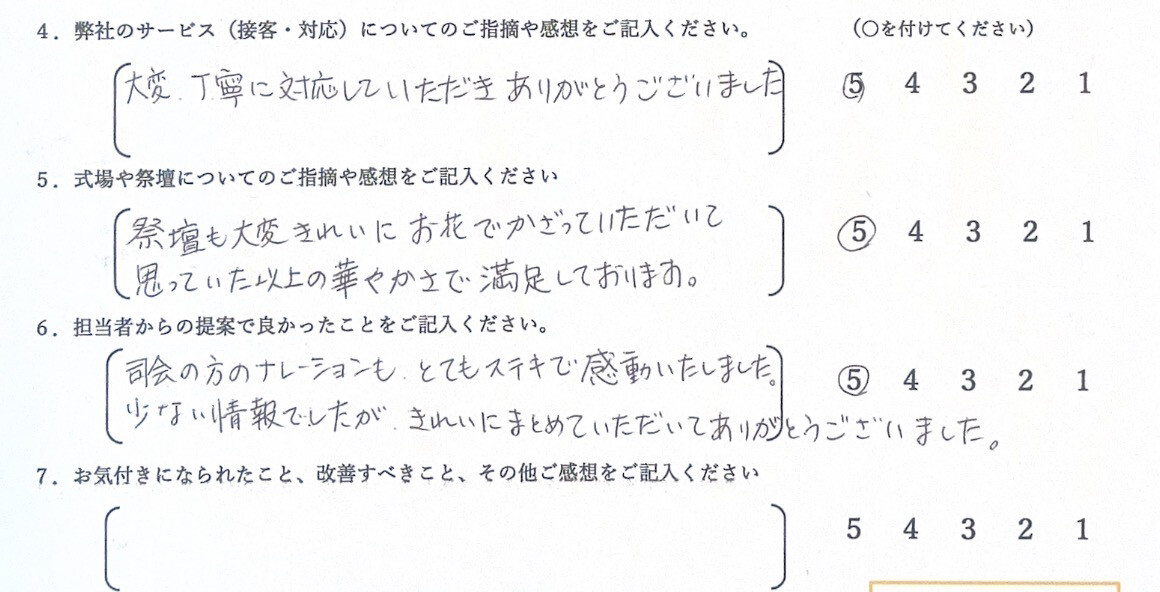 4．弊社のサービス（接客・対応）についてのご指摘や感想をご記入ください。　（○を付けてください）
大変、丁寧に対応していただきありがとうございました　5　4　3　2　1
5．式場や祭壇についてのご指摘や感想をご記入ください
祭壇も大変きれいにお花でかざっていただいて　5　4　3　2　1
思っていた以上の華やかさで満足しております。
6．担当者からの提案で良かったことをご記入ください。
司会の方のナレーションも、とてもステキで感動いたしました。　5　4　3　2　1
少ない情報でしたが、きれいにまとめていただいてありがとうございました。
7．お気付きになられたこと、改善すべきこと、その他ご感想をご記入ください
5　4　3　2　1